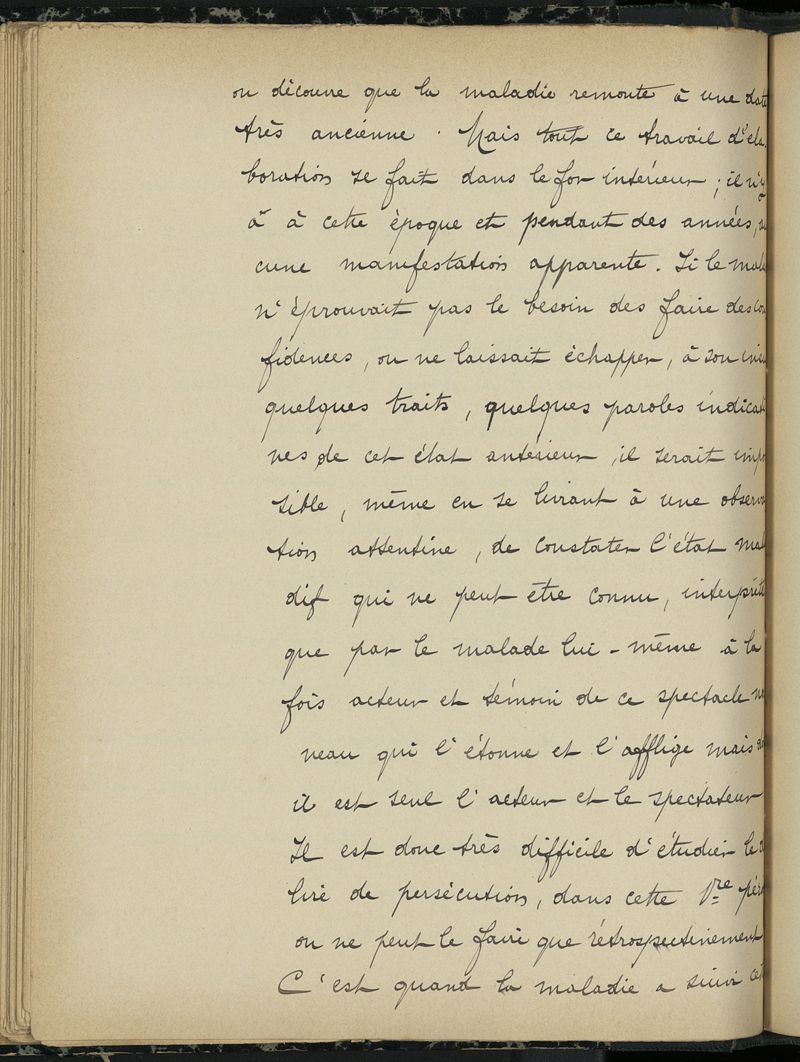 on découvre que la maladie remonte à une date
très ancienne. Mais tout ce travail d'éla
boration se fait dans le for intérieur; il n'y
a à cette époque et pendant des années, au
cune manifestation apparente. Si le mala
n'éprouvait pas le besoin des faire des con
fidences, ou ne laissait échapper, à son insu
quelques traits, quelques paroles indicati
ves de cet état antérieur, il serait impo
sible, même en se livrant à une observa
tion attentive, de constater l'état mala
dif qui ne peut être connu, interprété
que par le malade lui-même à la
fois acteur et témoin de ce spectacle nou
veau qui l'étonne et l'afflige mais
il est seul l'acteur et le spectateur
Il est donc très difficile d'étudier le dé
lire de persécution, dans cette 1re péri
on ne peut le faire que rétrospectivement
C'est quand la maladie a suivi cet